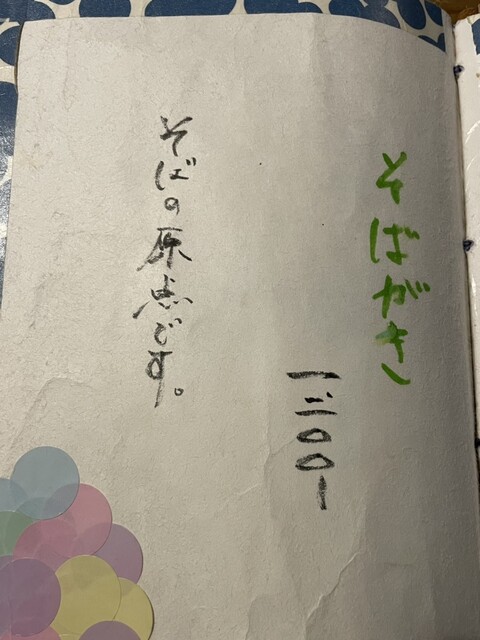 そばがき
一三〇〇ー
そばの原点です。